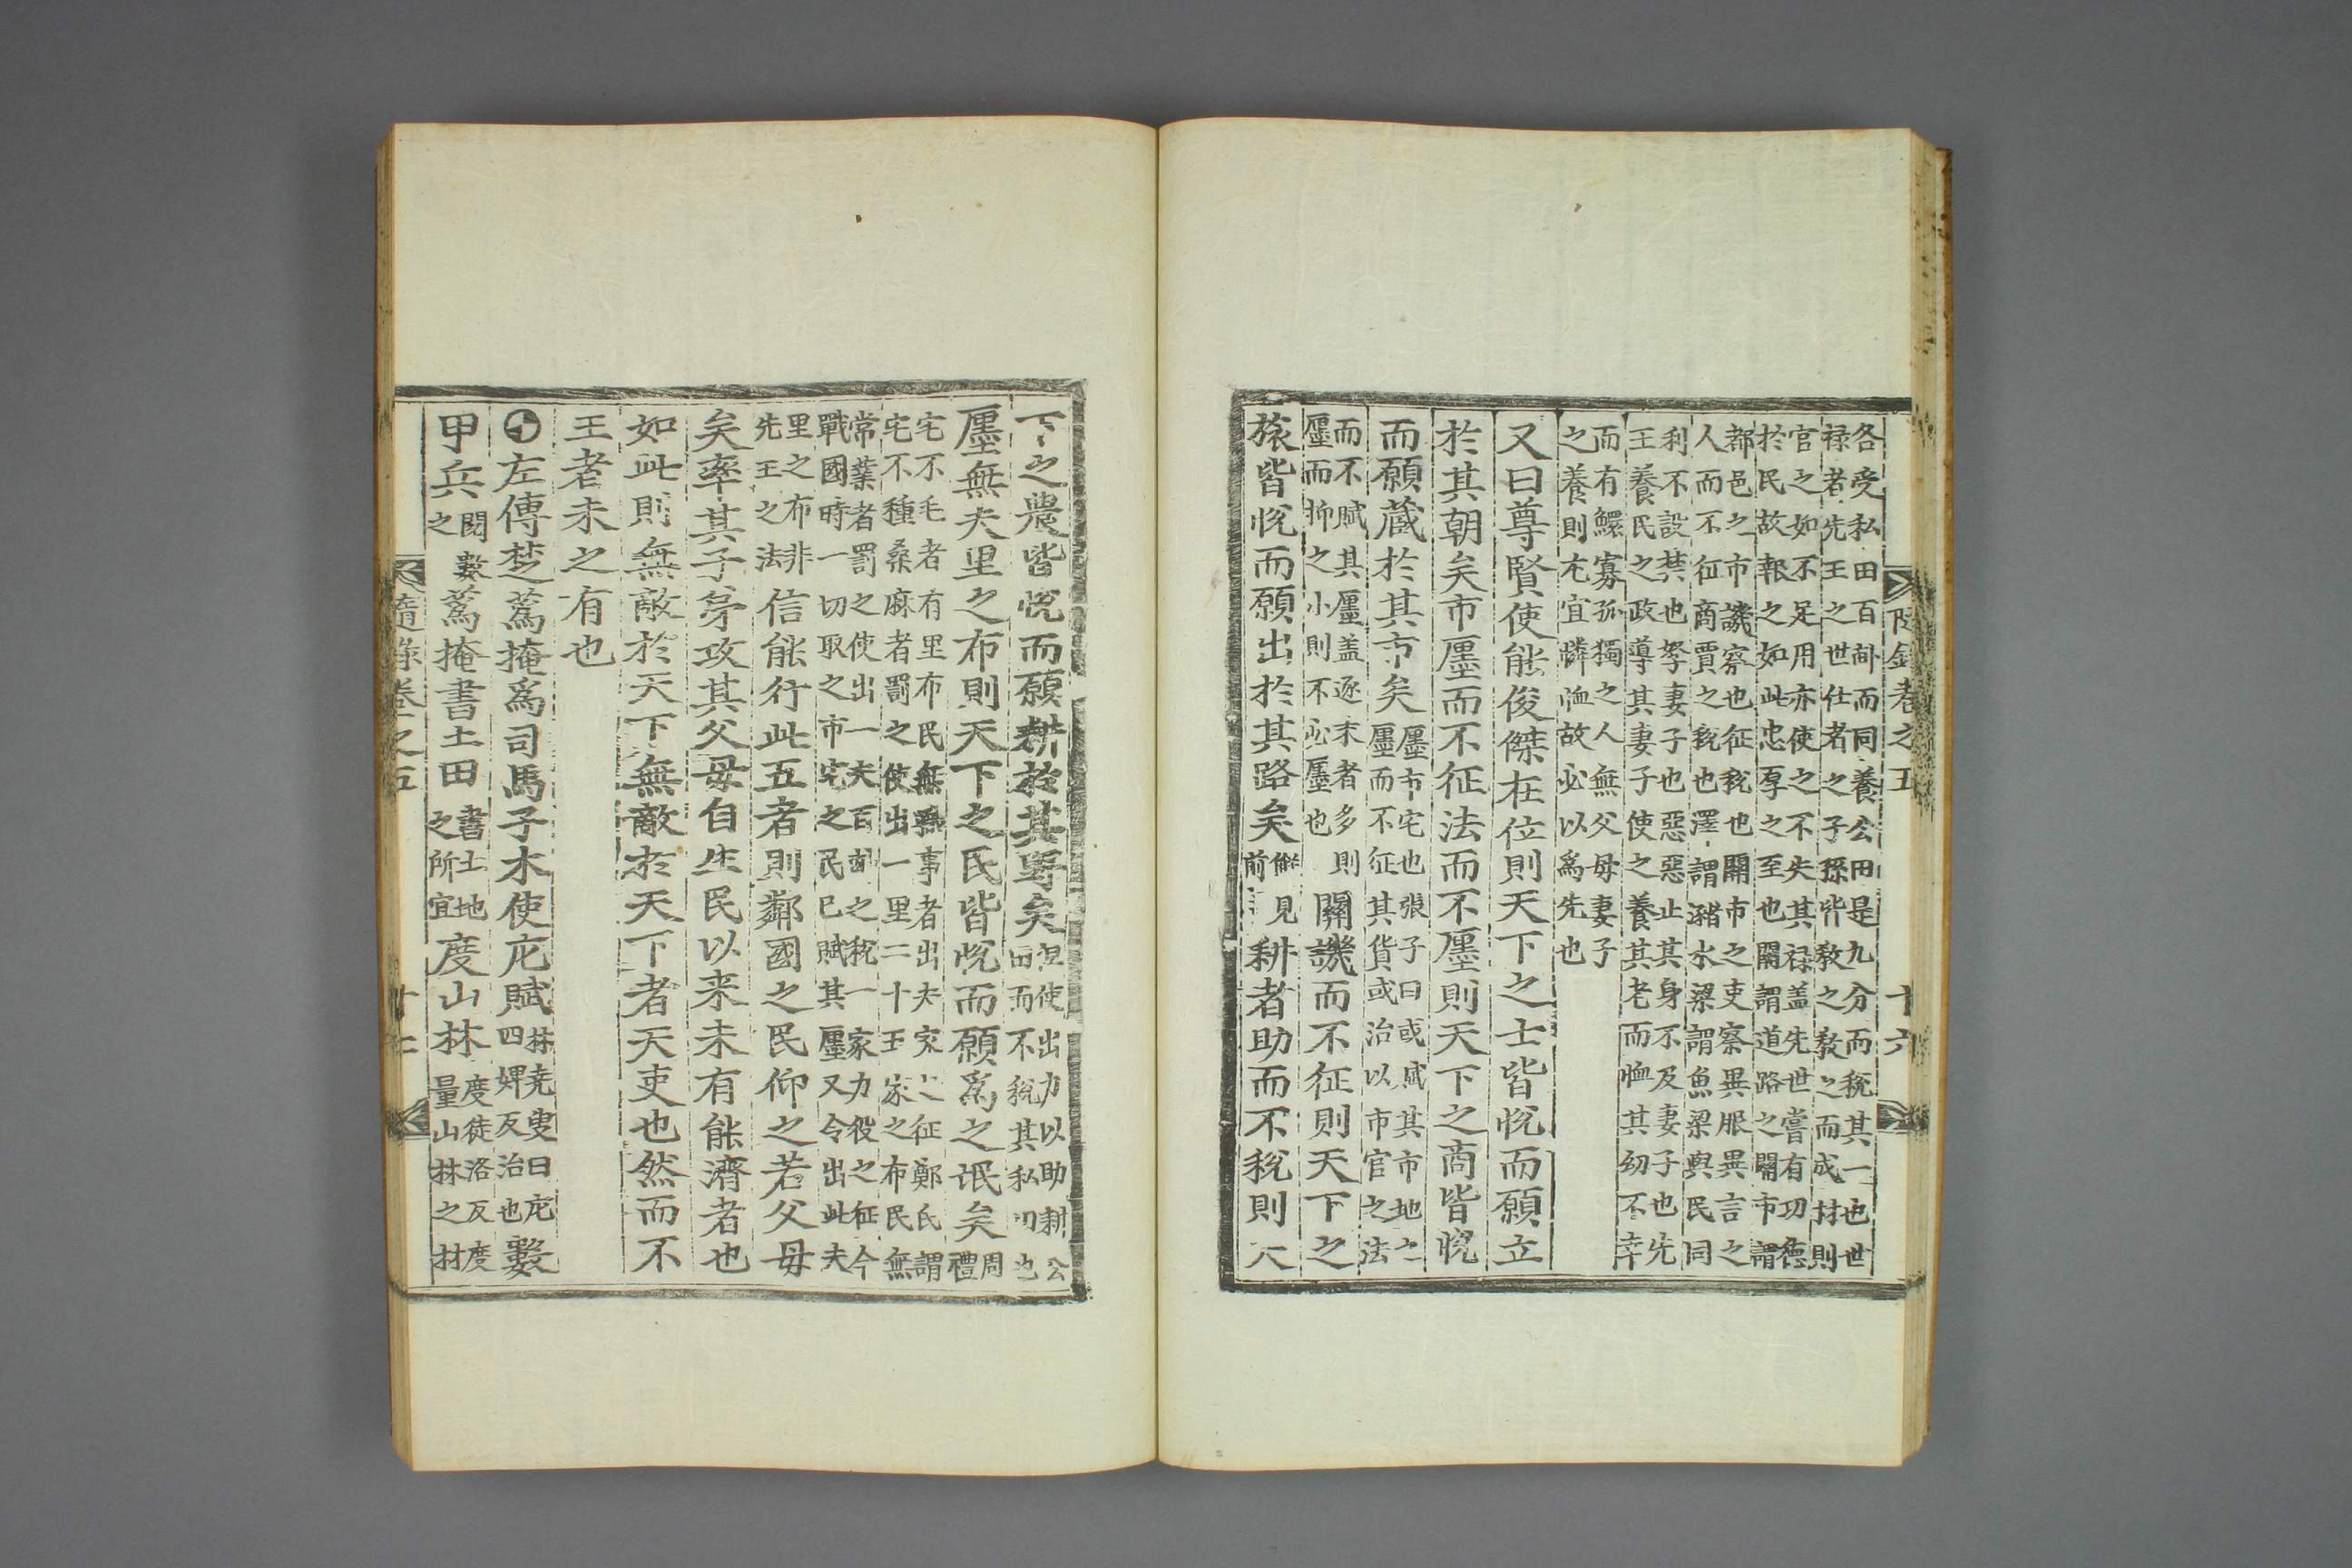 隨錄卷之五 十六
各受私田百畝而同養公田是九分而稅其一也世
祿者先王之世仕者之子孫皆敎之敎之而成材則
官之如不足用亦使之不失其祿盖先世嘗有功德
於民故報之如此忠厚之至也關謂道路之關市謂
都邑之市譏察也征稅也關市之吏察異服異言之
人而不征商賈之稅也澤謂瀦水梁謂魚梁與民同
利不設禁也孥妻子也惡惡止其身不及妻子也先
王養民之政導其妻子使之養其老而恤其幼不幸
而有鰥寡孤獨之人無父母妻子
之養則尤宜憐恤故必以爲先也
又曰尊賢使能俊傑在位則天下之士皆悅而願立
於其朝矣市廛而不征法而不廛則天下之商皆悅
而願藏於其市矣廛市宅也張子曰或賦其市地之
廛而不征其貨或治以市官之法
而不賦其廛盖逐末者多則
廛而抑之小則不必廛也關譏而不征則天下之
旅皆悅而願出於其路矣解見
前耕者助而不稅則天
下之農皆悅而願耕於其野矣但使出力以助耕公
田而不稅其私田也
廛無夫里之布則天下之民皆悅而願爲之氓矣周
禮
宅不毛者有里布民無職事者出夫家之征鄭氏謂
宅不種桑麻者罰之使出一里二十五家之布民無
常業者罰之使出一夫百畝之稅一家力役之征今
戰國時一切取之市宅之民已賦其廛又令出此夫
里之布非
先王之法信能行此五者則鄰國之民仰之若父母
矣率其子弟攻其父母自生民以來未有能濟者也
如此則無敵於天下無敵於天下者天吏也然而不
王者未之有也
左傳楚蔿掩爲司馬子木使庀賦
四婢反治也數
甲兵閱數
之蔿掩書土田書土地
之所宜度山林度徒洛反度
量山林之材
隨錄卷之五